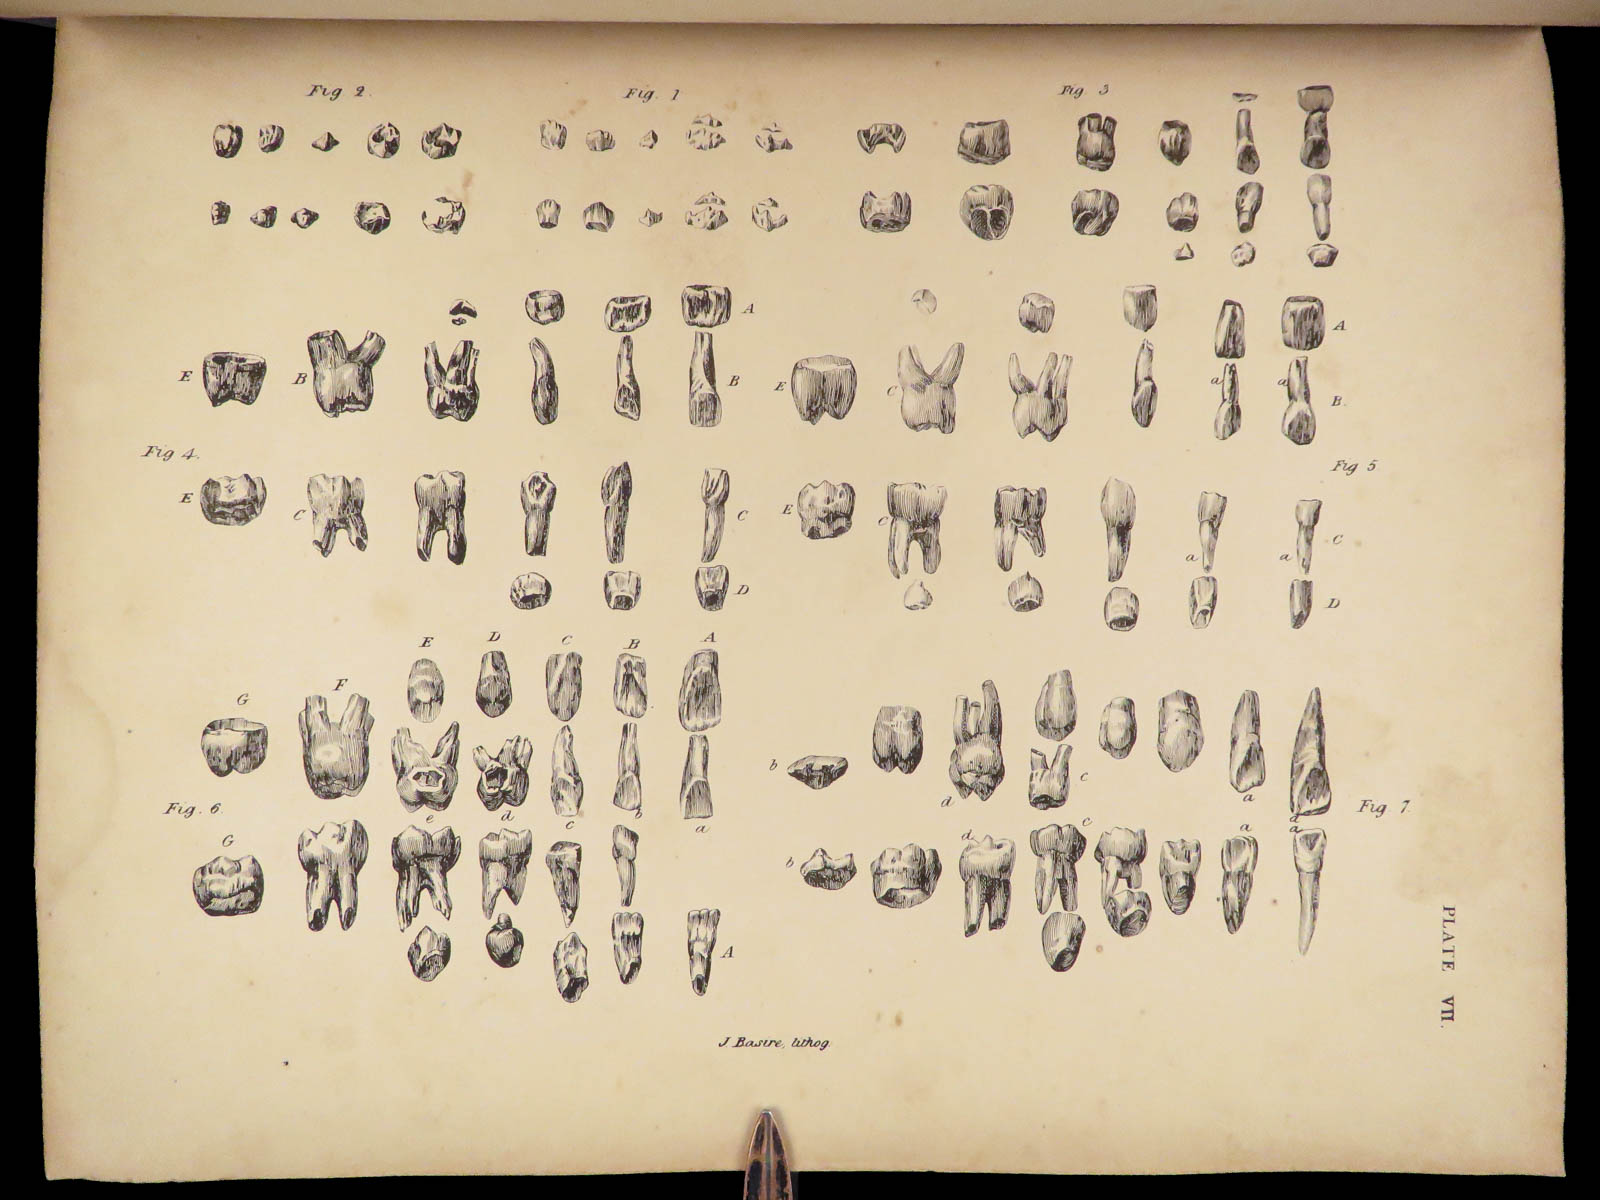 Fig 2.
Fig. 1
Fig 3
A
A
E
B
B
E
C
a
a
B.
Fig 4.
Fig 5
E
C
C
E
C
a
a
C
D
D
E
D
C
B
A
G
F
b
d
c
a
a
Fig. 6
Fig. 7
e
d
c
b
a
G
b
d
c
a
a
A
PLATE VII.
J Basire, lithog.